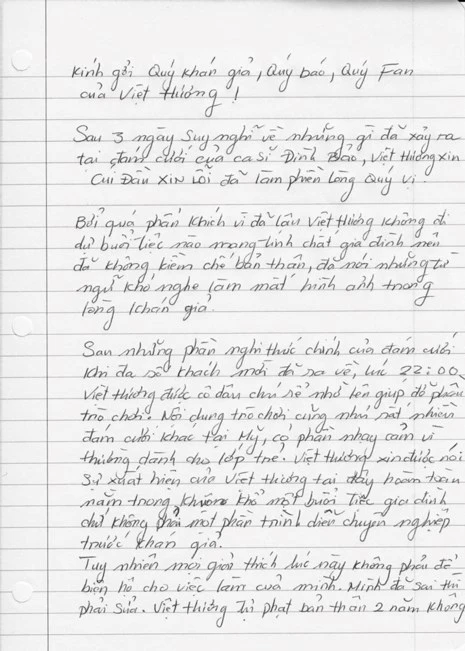 Kính gởi Quý khán giả, Quý báo, Quý Fan
của Việt Hương!
Sau 3 ngày suy nghĩ về những gì đã xảy ra
tại đám cưới của ca sĩ Đình Bảo, Việt Hương xin
CÚI ĐẦU XIN LỖI đã làm phiền lòng Quý vị.
Bởi quá phấn khích vì đã lâu Việt Hương không đi
dự buổi tiệc nào mang tính chất gia đình nên
đã không kiềm chế bản thân, đã nói những từ
ngữ khó nghe làm mất hình ảnh trong
lòng khán giả.
Sau những phần nghi thức chính của đám cưới
khi đa số khách mời đã ra về, lúc 22:00
Việt Hương được cô dâu chú rể nhờ lên giúp đỡ phần
trò chơi. Nội dung trò chơi cũng như rất nhiều
đám cưới khác tại Mỹ, có phần nhạy cảm vì
thường dành cho lớp trẻ. Việt Hương xin được nói
sự xuất hiện của Việt Hương tại đây hoàn toàn
nằm trong khuôn khổ một buổi tiệc gia đình
chứ không phải một phần trình diễn chuyên nghiệp
trước khán giả.
Tuy nhiên mọi giải thích lúc này không phải để
biện hộ cho việc làm của mình. Mình đã sai thì
phải sửa. Việt Hương tự phạt bản thân 2 năm không